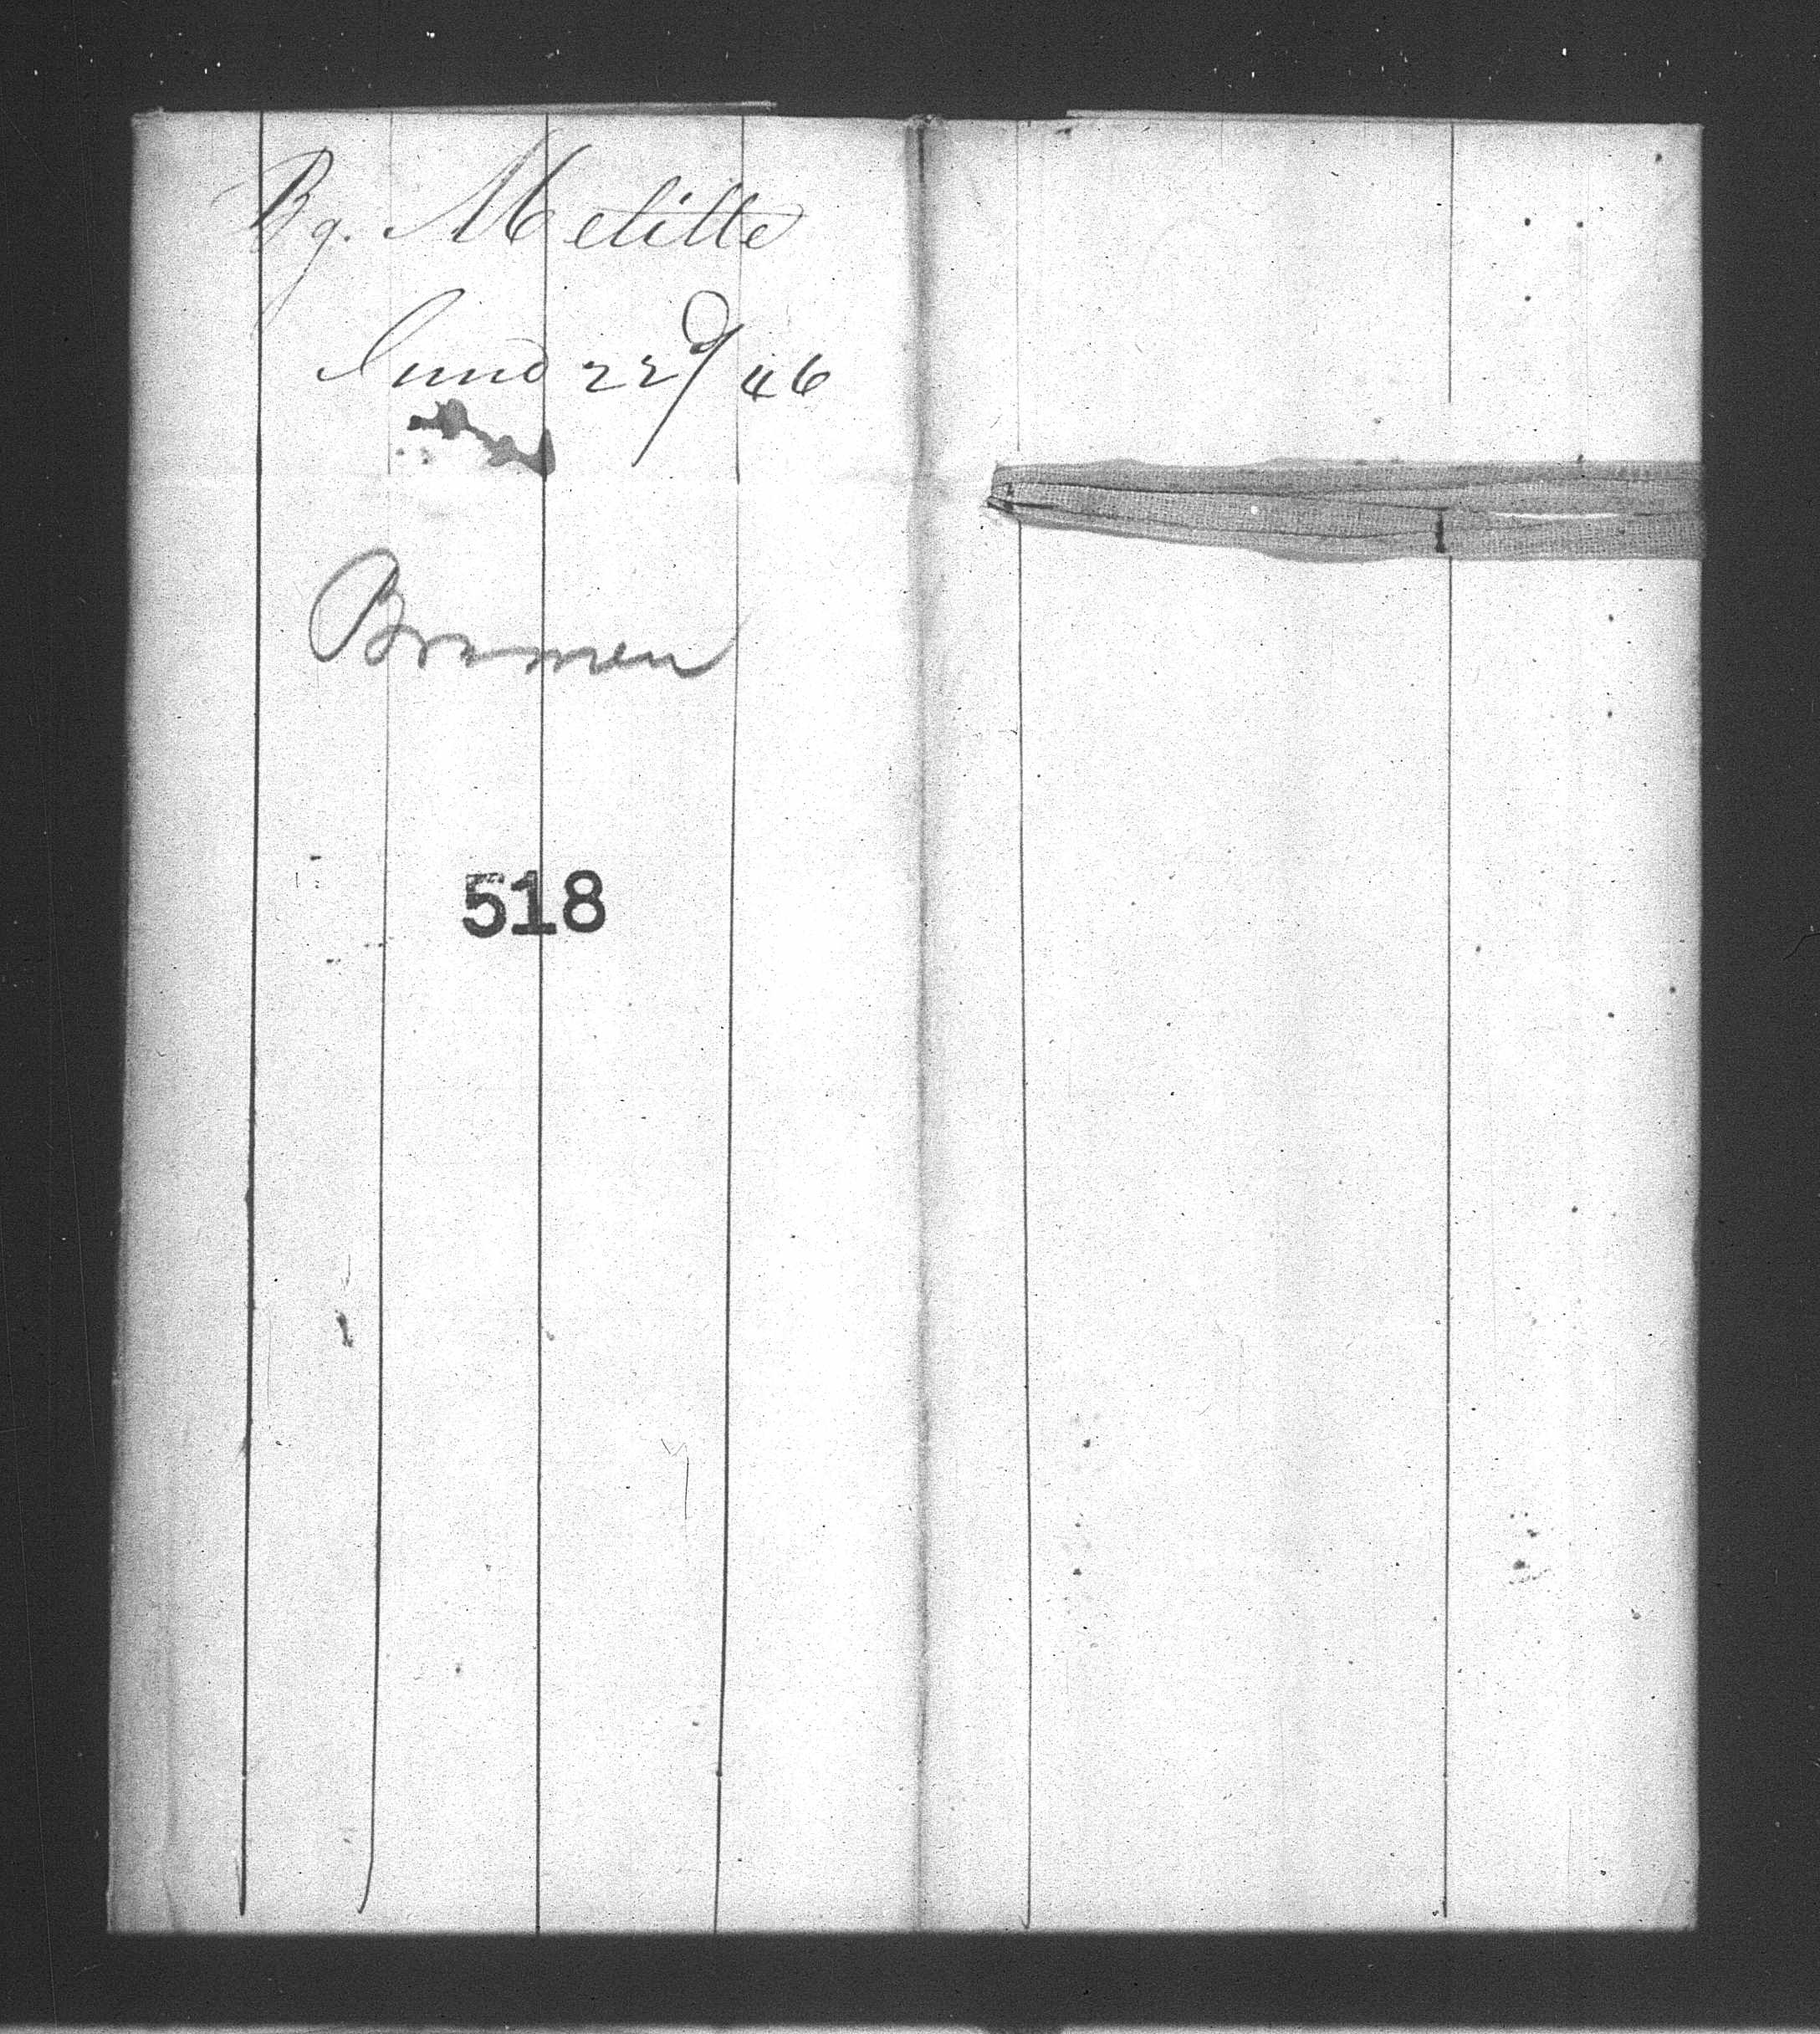 Bg. Melitte
June 22d/46
Bremen
518